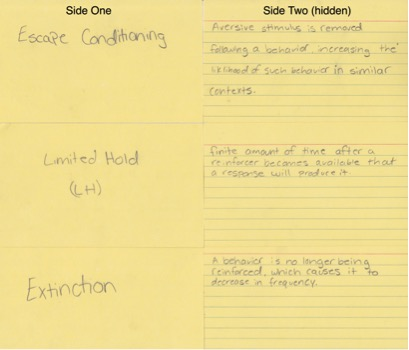 Side One
Side Two (hidden)
Escape Conditioning
Aversive stimulus is removed
following a behavior, increasing the
likelihood of such behavior in similar
contexts.
Limited Hold
(LH)
finite amount of time after a
reinforcer becomes available that
a response will produce it.
Extinction
A behavior is no longer being
reinforced, which causes it to
decrease in frequency.